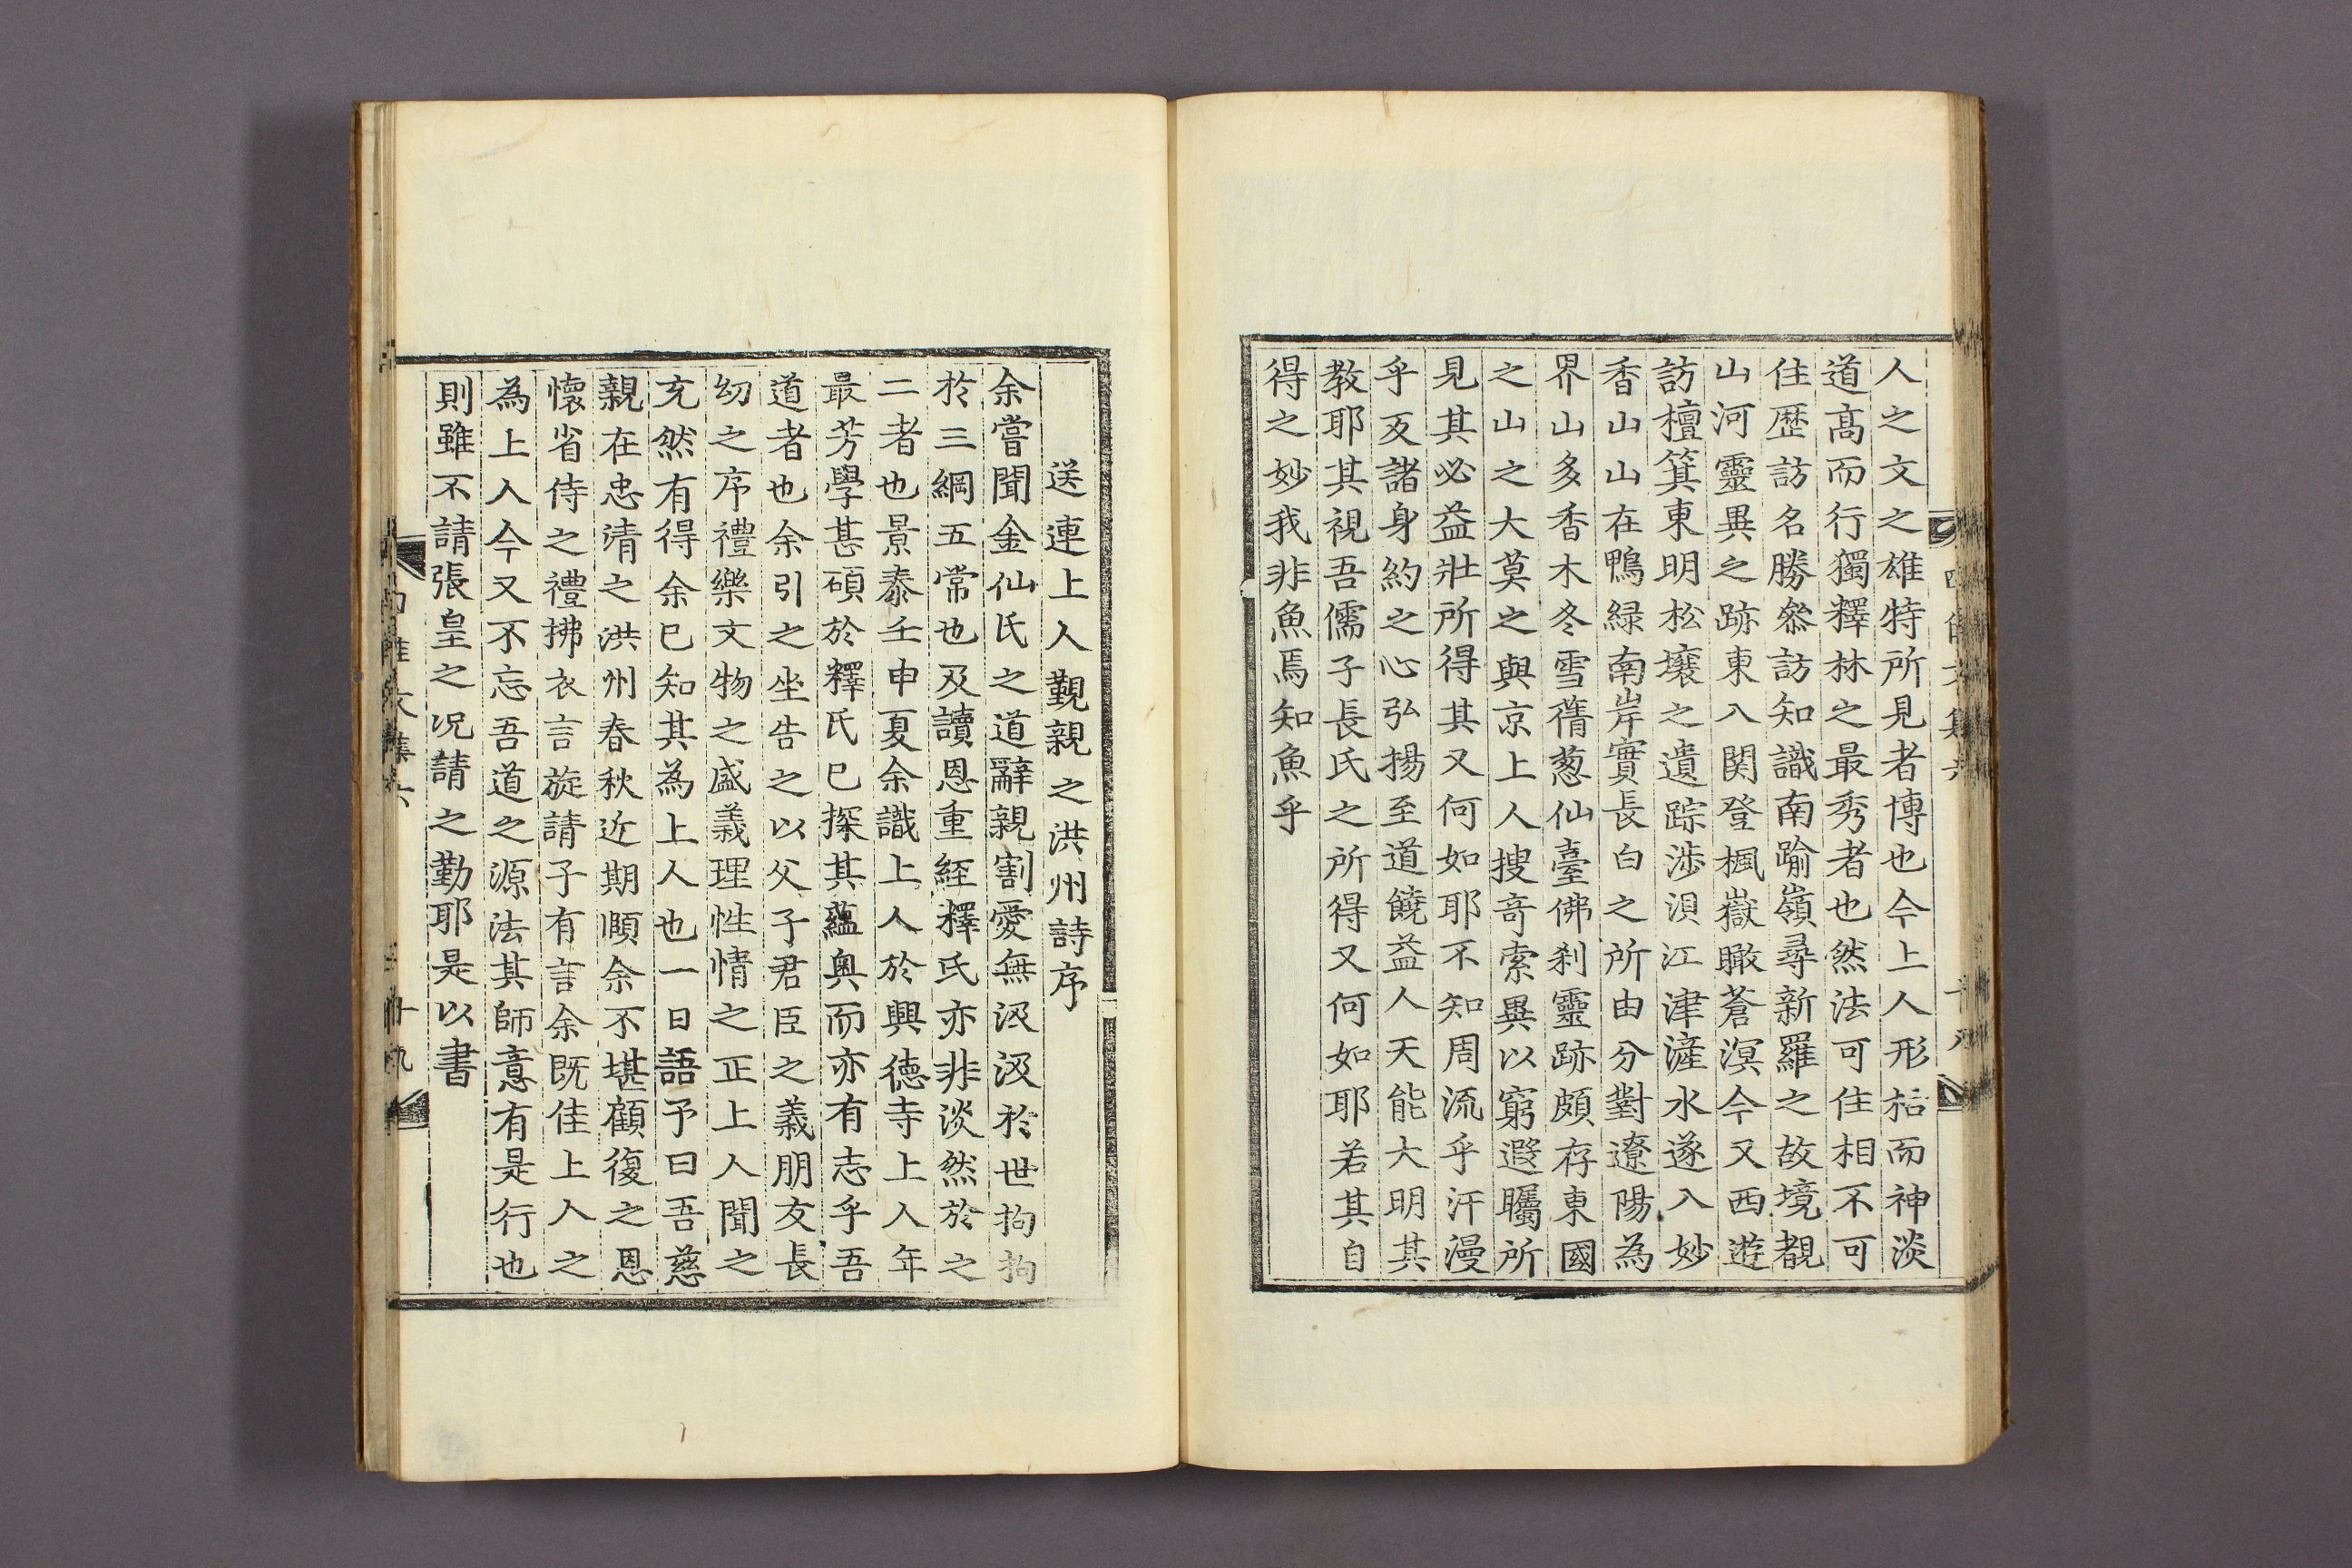 人之文之雄特所見者博也今上人形枯而神淡
道高而行獨釋林之最秀者也然法可住相不可
住歷訪名勝叅訪知識南踰嶺尋新羅之故境覩
山河靈異之跡東入関登楓嶽瞰蒼溟今又西遊
訪檀箕東明松壤之遺踪渉浿江津滻水遂入妙
香山山在鴨緑南岸實長白之所由分對遼陽為
界山多香木冬雪蒨葱仙臺佛刹靈跡頗存東國
之山之大莫之與京上人搜奇索異以窮遐矚所
見其必益壯所得其又何如耶不知周流乎汗漫
乎反諸身約之心弘揚至道饒益人天能大明其
教耶其視吾儒子長氏之所得又何如耶若其自
得之妙我非魚焉知魚乎
送連上人覲親之洪州詩序
余嘗聞金仙氏之道辭親割愛無汲汲於世拘拘
於三綱五常也及讀恩重經釋氏亦非淡然於之
二者也景泰壬申夏余識上人於興德寺上人年
最芳學甚碩於釋氏已探其蘊奥而亦有志乎吾
道者也余引之坐告之以父子君臣之義朋友長
幼之序禮樂文物之盛義理性情之正上人聞之
充然有得余已知其為上人也一日語予曰吾慈
親在忠清之洪州春秋近期頤余不堪顧復之恩
懷省侍之禮拂衣言旋請子有言余既佳上人之
為上人今又不忘吾道之源法其師意有是行也
則雖不請張皇之况請之勤耶是以書